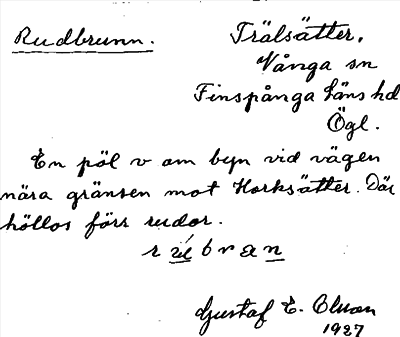 Rudbrunn.
Trälsätter,
Vånga sn
Finspånga läns hd
Ögl.
En pöl v om byn vid vägen
nära gränsen mot Horksätter. Där
höllos förr rudor.
Gustaf E. Olsson
1927